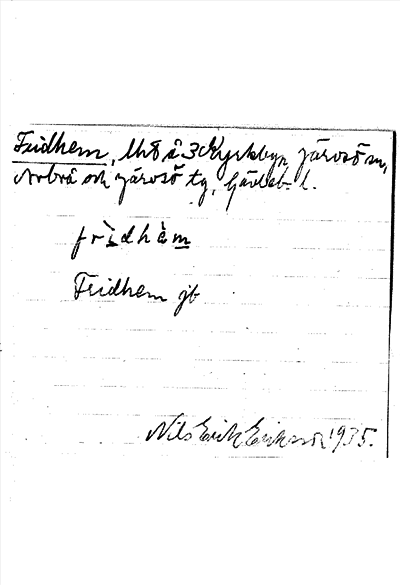 Fridhem, lht å 3 Kyrkbyn, Järvsö sn,
Arbrå och Järvsö tg, Gävleb. l.
frìdhè̱m
Fridhem jb
Nils Erik Erikson 1935.